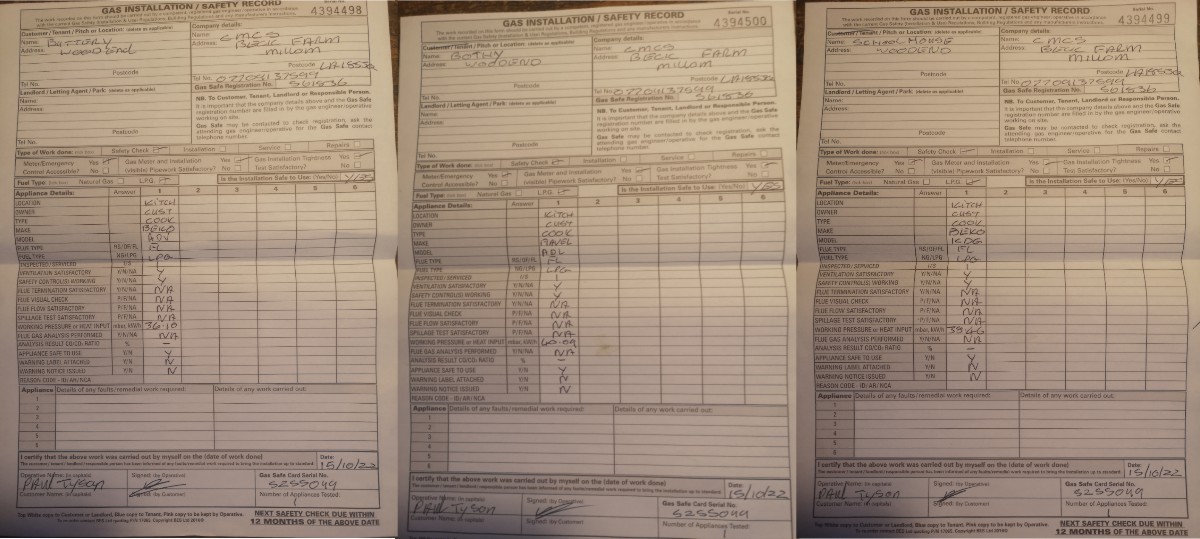 GAS INSTALLATION / SAFETY RECORD
Serial No.
4394498
Customer / Tenant / Pitch or Location: (delete as applicable)
Company details:
Name: BUTTERY
Name: CMCS
Address: WOODEND
Address: BECK FARM
MILLOM
Postcode
Postcode LA185JQ
Tel No.
Tel No.
Landlord / Letting Agent / Park: (delete as applicable)
Gas Safe Registration No. 561536
Name:
NB. To Customer, Tenant, Landlord or Responsible Person.
Address:
It is important that the company details above and the Gas Safe
registration number are filled in by the gas engineer/operative
working on site.
Gas Safe may be contacted to check registration, ask the
Postcode
attending gas engineer/operative for the Gas Safe contact
Tel No.
telephone number.
Type of Work done: Safety Check Installation Service Repairs
Meter/Emergency Yes Gas Meter and Installation Yes Gas Installation Tightness Yes
Control Accessible? No (visible) Pipework Satisfactory? No Test Satisfactory? No
Fuel Type: Natural Gas L.P.G. Is the Installation Safe to Use: (Yes/No) YES
Appliance Details: Answer 1 2 3 4 5 6
LOCATION KITCH
OWNER CUST
TYPE COOK
MAKE BEKO
MODEL
FLUE TYPE RS/OF/FL FL
FUEL TYPE NG/LPG LPG
INSPECTED/ SERVICED I/S I
VENTILATION SATISFACTORY Y/N/NA Y
SAFETY CONTROL(S) WORKING Y/N/NA Y
FLUE TERMINATION SATISFACTORY Y/N/NA NA
FLUE VISUAL CHECK P/F/NA NA
FLUE FLOW SATISFACTORY P/F/NA NA
SPILLAGE TEST SATISFACTORY P/F/NA NA
WORKING PRESSURE or HEAT INPUT mbar, kW/h 36-10
FLUE GAS ANALYSIS PERFORMED Y/N/NA NA
ANALYSIS RESULT CO/CO₂ RATIO % -
APPLIANCE SAFE TO USE Y/N Y
WARNING LABEL ATTACHED Y/N N
WARNING NOTICE ISSUED Y/N N
REASON CODE - ID/ AR/ NCA
Appliance Details of any faults/remedial work required: Details of any work carried out:
1
2
3
4
5
6
I certify that the above work was carried out by myself on the (date of work done) Date: 15/10/22
Operative Name: (in capitals) Signed: (by Operative) Gas Safe Card Serial No.
PAUL TYSON 5255049
Customer Name: (in capitals) Signed: (by Customer) Number of Appliances Tested:
1
Top White copy to Customer or Landlord, Blue copy to Tenant, Pink copy to be kept by Operative.
NEXT SAFETY CHECK DUE WITHIN
12 MONTHS OF THE ABOVE DATE
GAS INSTALLATION / SAFETY RECORD
Serial No.
4394500
Customer / Tenant / Pitch or Location: (delete as applicable)
Company details:
Name: BOTHY
Name: CMCS
Address: WOODEND
Address: BECK FARM
MILLOM
Postcode
Postcode LA185JQ
Tel No.
Tel No.
Landlord / Letting Agent / Park: (delete as applicable)
Gas Safe Registration No. 561536
Name:
NB. To Customer, Tenant, Landlord or Responsible Person.
Address:
It is important that the company details above and the Gas Safe
registration number are filled in by the gas engineer/operative
working on site.
Gas Safe may be contacted to check registration, ask the
Postcode
attending gas engineer/operative for the Gas Safe contact
Tel No.
telephone number.
Type of Work done: Safety Check Installation Service Repairs
Meter/Emergency Yes Gas Meter and Installation Yes Gas Installation Tightness Yes
Control Accessible? No (visible) Pipework Satisfactory? No Test Satisfactory? No
Fuel Type: Natural Gas L.P.G. Is the Installation Safe to Use: (Yes/No) YES
Appliance Details: Answer 1 2 3 4 5 6
LOCATION KITCH
OWNER CUST
TYPE COOK
MAKE FLAVEL
MODEL
FLUE TYPE RS/OF/FL FL
FUEL TYPE NG/LPG LPG
INSPECTED/ SERVICED I/S
VENTILATION SATISFACTORY Y/N/NA Y
SAFETY CONTROL(S) WORKING Y/N/NA Y
FLUE TERMINATION SATISFACTORY Y/N/NA NA
FLUE VISUAL CHECK P/F/NA NA
FLUE FLOW SATISFACTORY P/F/NA NA
SPILLAGE TEST SATISFACTORY P/F/NA NA
WORKING PRESSURE or HEAT INPUT mbar, kW/h
FLUE GAS ANALYSIS PERFORMED Y/N/NA NA
ANALYSIS RESULT CO/CO₂ RATIO % -
APPLIANCE SAFE TO USE Y/N Y
WARNING LABEL ATTACHED Y/N N
WARNING NOTICE ISSUED Y/N N
REASON CODE - ID/ AR/ NCA
Appliance Details of any faults/remedial work required: Details of any work carried out:
1
2
3
4
5
6
I certify that the above work was carried out by myself on the (date of work done) Date: 15/10/22
Operative Name: (in capitals) Signed: (by Operative) Gas Safe Card Serial No.
PAUL TYSON 5255049
Customer Name: (in capitals) Signed: (by Customer) Number of Appliances Tested:
1
GAS INSTALLATION / SAFETY RECORD
Serial No.
4394499
Customer / Tenant / Pitch or Location: (delete as applicable)
Company details:
Name: SCHOOL HOUSE
Name: CMCS
Address: WOODEND
Address: BECK FARM
MILLOM
Postcode
Postcode LA185JQ
Tel No.
Tel No.
Landlord / Letting Agent / Park: (delete as applicable)
Gas Safe Registration No. 561536
Name:
NB. To Customer, Tenant, Landlord or Responsible Person.
Address:
It is important that the company details above and the Gas Safe
registration number are filled in by the gas engineer/operative
working on site.
Gas Safe may be contacted to check registration, ask the
Postcode
attending gas engineer/operative for the Gas Safe contact
Tel No.
telephone number.
Type of Work done: Safety Check Installation Service Repairs
Meter/Emergency Yes Gas Meter and Installation Yes Gas Installation Tightness Yes
Control Accessible? No (visible) Pipework Satisfactory? No Test Satisfactory? No
Fuel Type: Natural Gas L.P.G. Is the Installation Safe to Use: (Yes/No) YES
Appliance Details: Answer 1 2 3 4 5 6
LOCATION KITCH
OWNER CUST
TYPE COOK
MAKE BEKO
MODEL KDG
FLUE TYPE RS/OF/FL FL
FUEL TYPE NG/LPG LPG
INSPECTED/ SERVICED I/S I
VENTILATION SATISFACTORY Y/N/NA Y
SAFETY CONTROL(S) WORKING Y/N/NA Y
FLUE TERMINATION SATISFACTORY Y/N/NA NA
FLUE VISUAL CHECK P/F/NA NA
FLUE FLOW SATISFACTORY P/F/NA NA
SPILLAGE TEST SATISFACTORY P/F/NA NA
WORKING PRESSURE or HEAT INPUT mbar, kW/h
FLUE GAS ANALYSIS PERFORMED Y/N/NA NA
ANALYSIS RESULT CO/CO₂ RATIO % -
APPLIANCE SAFE TO USE Y/N Y
WARNING LABEL ATTACHED Y/N N
WARNING NOTICE ISSUED Y/N N
REASON CODE - ID/ AR/ NCA
Appliance Details of any faults/remedial work required: Details of any work carried out:
1
2
3
4
5
6
I certify that the above work was carried out by myself on the (date of work done) Date: 15/10/22
Operative Name: (in capitals) Signed: (by Operative) Gas Safe Card Serial No.
PAUL TYSON 5255049
Customer Name: (in capitals) Signed: (by Customer) Number of Appliances Tested:
1
Top White copy to Customer or Landlord, Blue copy to Tenant, Pink copy to be kept by Operative.
NEXT SAFETY CHECK DUE WITHIN
12 MONTHS OF THE ABOVE DATE